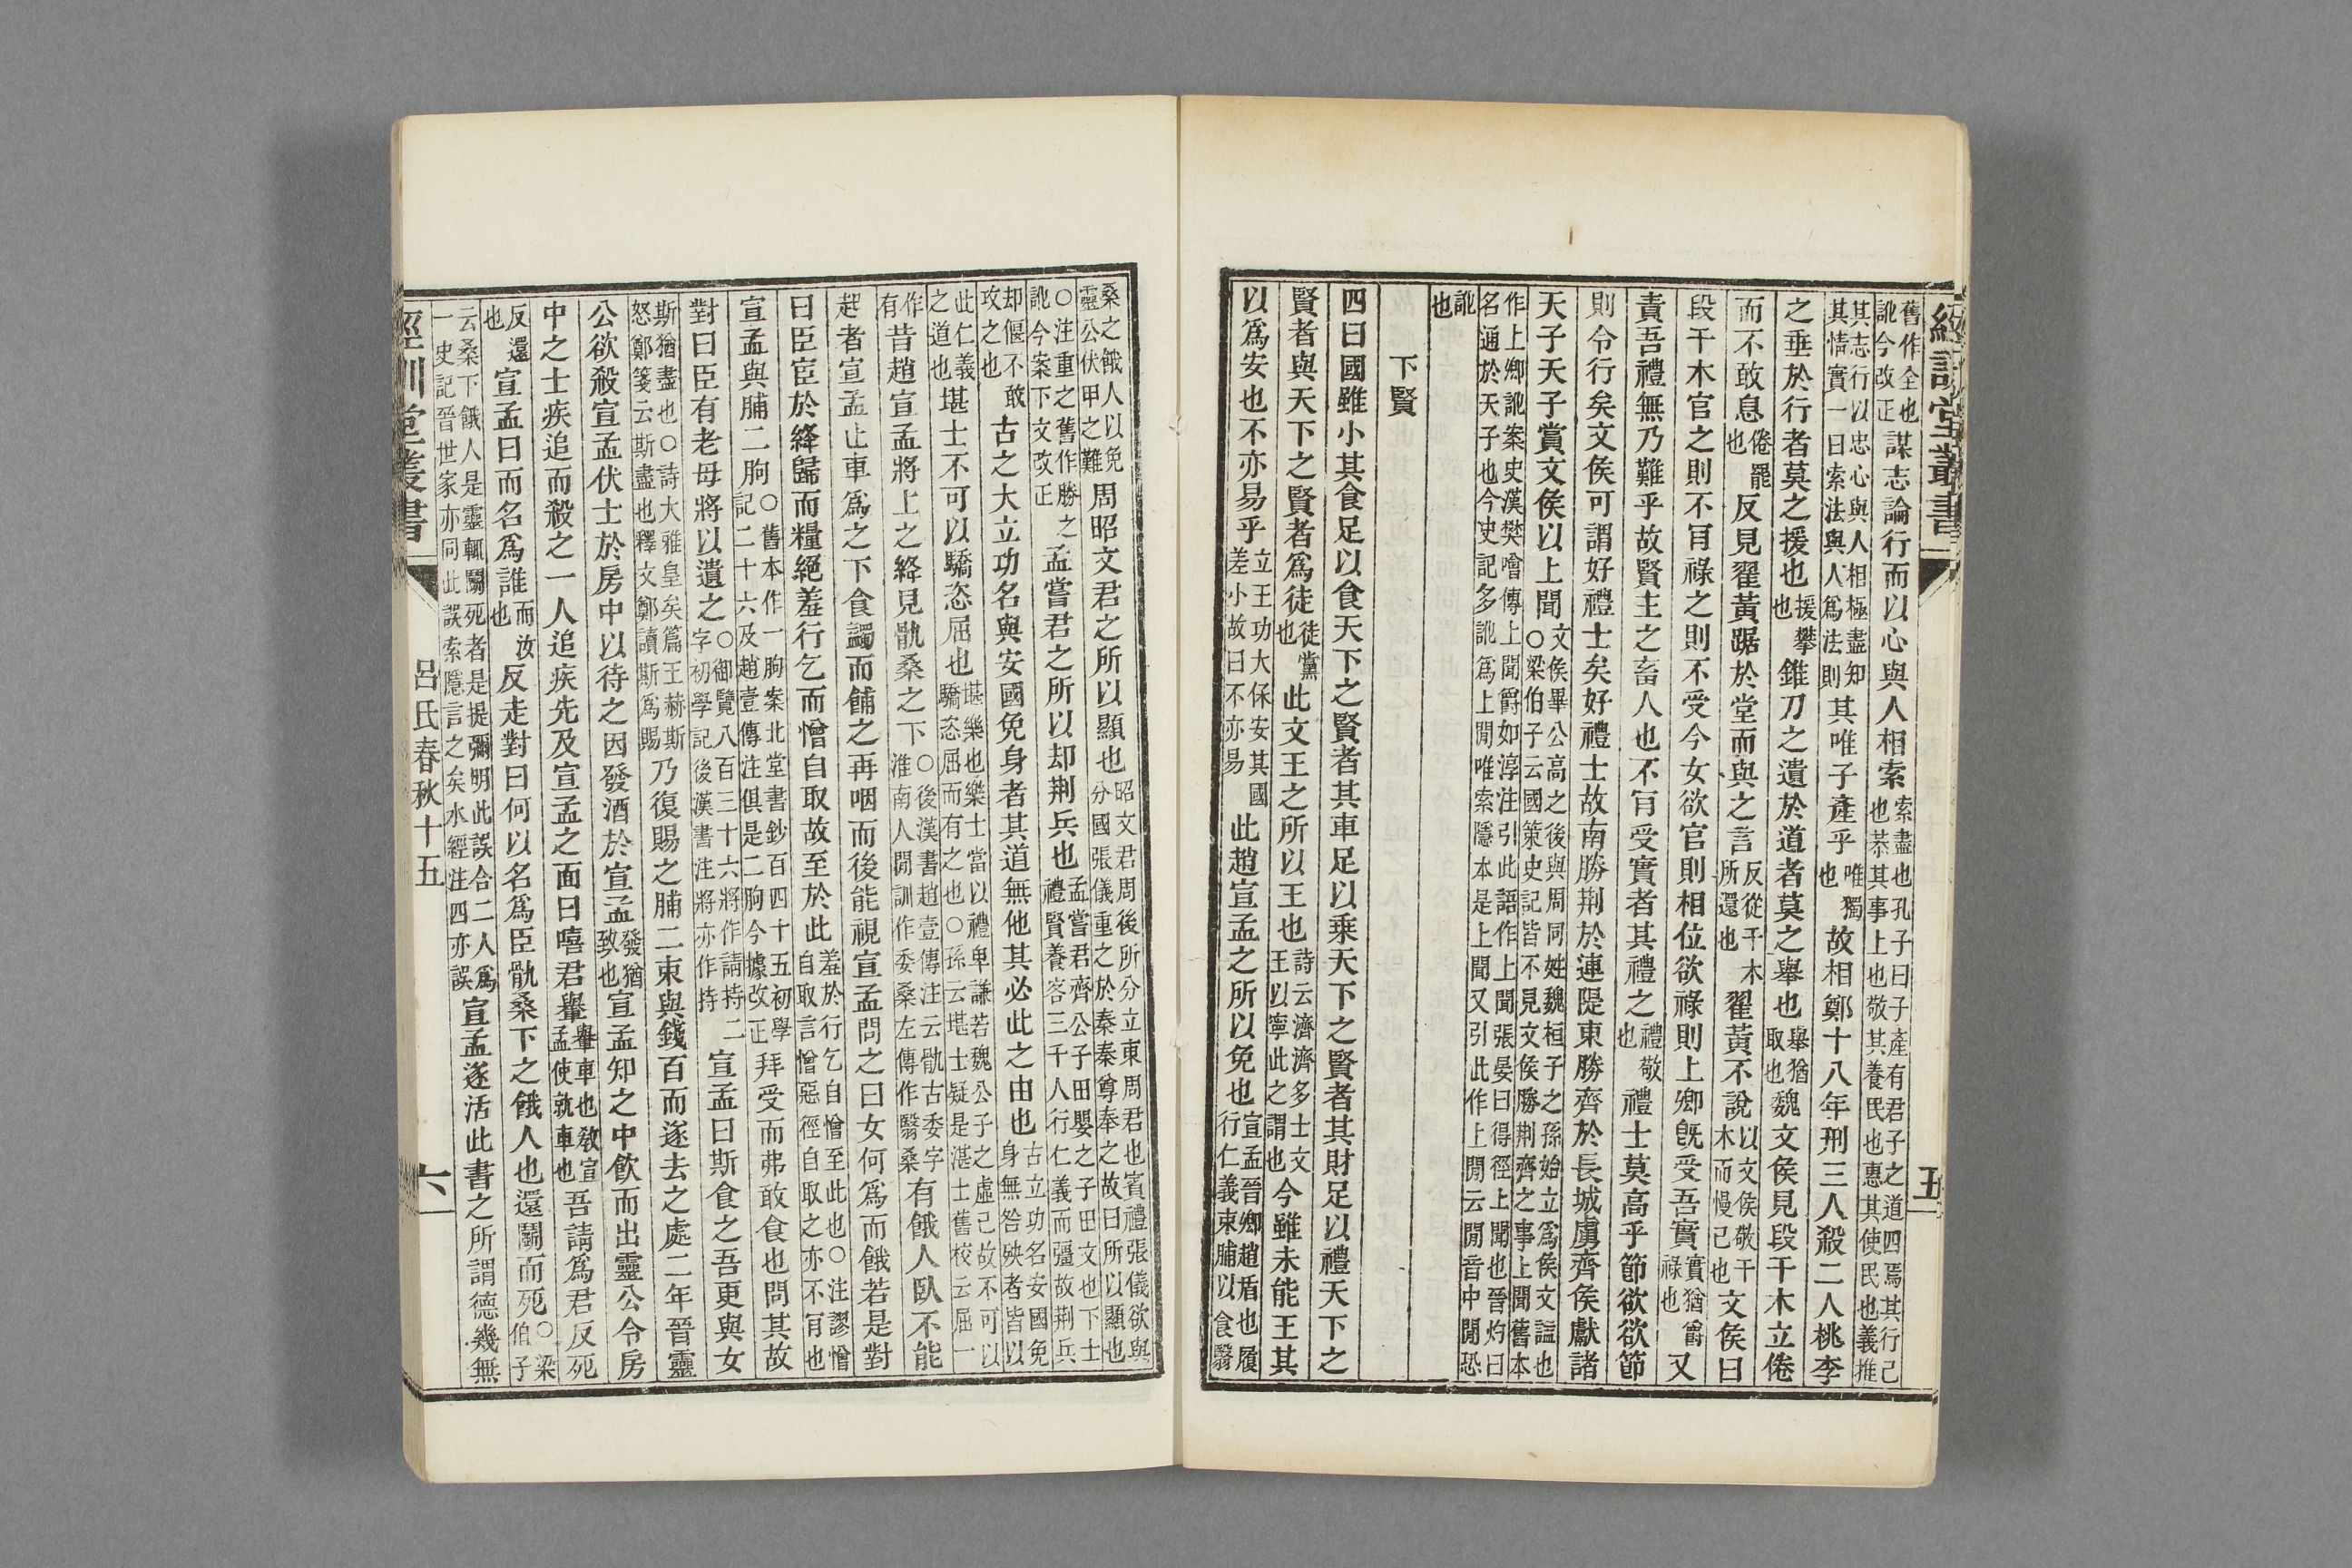 經訓堂叢書 五
舊作全也訛今改正謀志論行而以心與人相索索盡也孔子曰子產有君子之道四焉其行己也恭其事上也敬其養民也惠其使民也義推
其志行以忠心與人相極盡知其情實一曰索法與人爲法則其唯子產乎唯獨也故相鄭十八年刑三人殺二人桃李
之垂於行者莫之援也援攀也錐刀之遺於道者莫之舉也舉猶取也魏文侯見段干木立倦
而不敢息倦罷也反見翟黃踞於堂而與之言反從干木所還也翟黃不說以文侯敬干木而慢己也文侯曰
段干木官之則不肎祿之則不受今女欲官則相位欲祿則上卿旣受吾實實猶爵祿也又
責吾禮無乃難乎故賢主之畜人也不肎受實者其禮之禮敬也禮士莫高乎節欲欲節
則令行矣文侯可謂好禮士矣好禮士故南勝荆於連隄東勝齊於長城虜齊侯獻諸
天子天子賞文侯以上聞文侯畢公高之後與周同姓魏桓子之孫始立爲侯文諡也○梁伯子云國策史記皆不見文侯勝荆齊之事上聞舊本
作上卿訛案史漢樊噲傳上聞爵如淳注引此語作上聞張晏曰得徑上聞也晉灼曰名通於天子也今史記多訛爲上閒唯索隱本是上聞又引此作上閒云閒音中閒恐
訛也
下賢
四曰國雖小其食足以食天下之賢者其車足以乘天下之賢者其財足以禮天下之
賢者與天下之賢者爲徒徒黨也此文王之所以王也詩云濟濟多士文王以寧此之謂也今雖未能王其
以爲安也不亦易乎立王功大保安其國差小故曰不亦易此趙宣孟之所以免也宣孟晉卿趙盾也履行仁義束脯以食翳
桑之餓人以免靈公伏甲之難周昭文君之所以顯也昭文君周後所分立東周君也賓禮張儀欲與分國張儀重之於秦秦尊奉之故曰所以顯也
○注重之舊作勝之訛今案下文改正孟嘗君之所以却荆兵也孟嘗君齊公子田嬰之子田文也下士禮賢養客三千人行仁義而彊故荆兵
却偃不敢攻之也古之大立功名與安國免身者其道無他其必此之由也古立功名安國免身無咎殃者皆以
此仁義之道也堪士不可以驕恣屈也堪樂也樂士當以禮卑謙若魏公子之虛己故不可以驕恣屈而有之也○孫云堪士疑是湛士舊校云屈一
作有昔趙宣孟將上之絳見骫桑之下○後漢書趙壹傳注云骫古委字淮南人閒訓作委桑左傳作翳桑有餓人臥不能
起者宣孟止車爲之下食蠲而餔之再咽而後能視宣孟問之曰女何爲而餓若是對
曰臣宦於絳歸而糧絕羞行乞而憎自取故至於此羞於行乞自憎至此也○注謬憎自取言憎惡徑自取之亦不肎也
宣孟與脯二朐○舊本作一朐案北堂書鈔百四十五初學記二十六及趙壹傳注俱是二朐今據改正拜受而弗敢食也問其故
對曰臣有老母將以遺之○御覽八百三十六將作請持二字初學記後漢書注將亦作持宣孟曰斯食之吾更與女
斯猶盡也○詩大雅皇矣篇王赫斯怒鄭箋云斯盡也釋文鄭讀斯爲賜乃復賜之脯二束與錢百而遂去之處二年晉靈
公欲殺宣孟伏士於房中以待之因發酒於宣孟發猶致也宣孟知之中飲而出靈公令房
中之士疾追而殺之一人追疾先及宣孟之面曰嘻君轝轝車也敎宣孟使就車也吾請爲君反死
反還也宣孟曰而名爲誰而汝也反走對曰何以名爲臣骫桑下之餓人也還鬭而死○梁伯子
云桑下餓人是靈輒鬭死者是提彌明此誤合二人爲一史記晉世家亦同此誤索隱言之矣水經注四亦誤宣孟遂活此書之所謂德幾無
經訓堂叢書 呂氏春秋十五 六